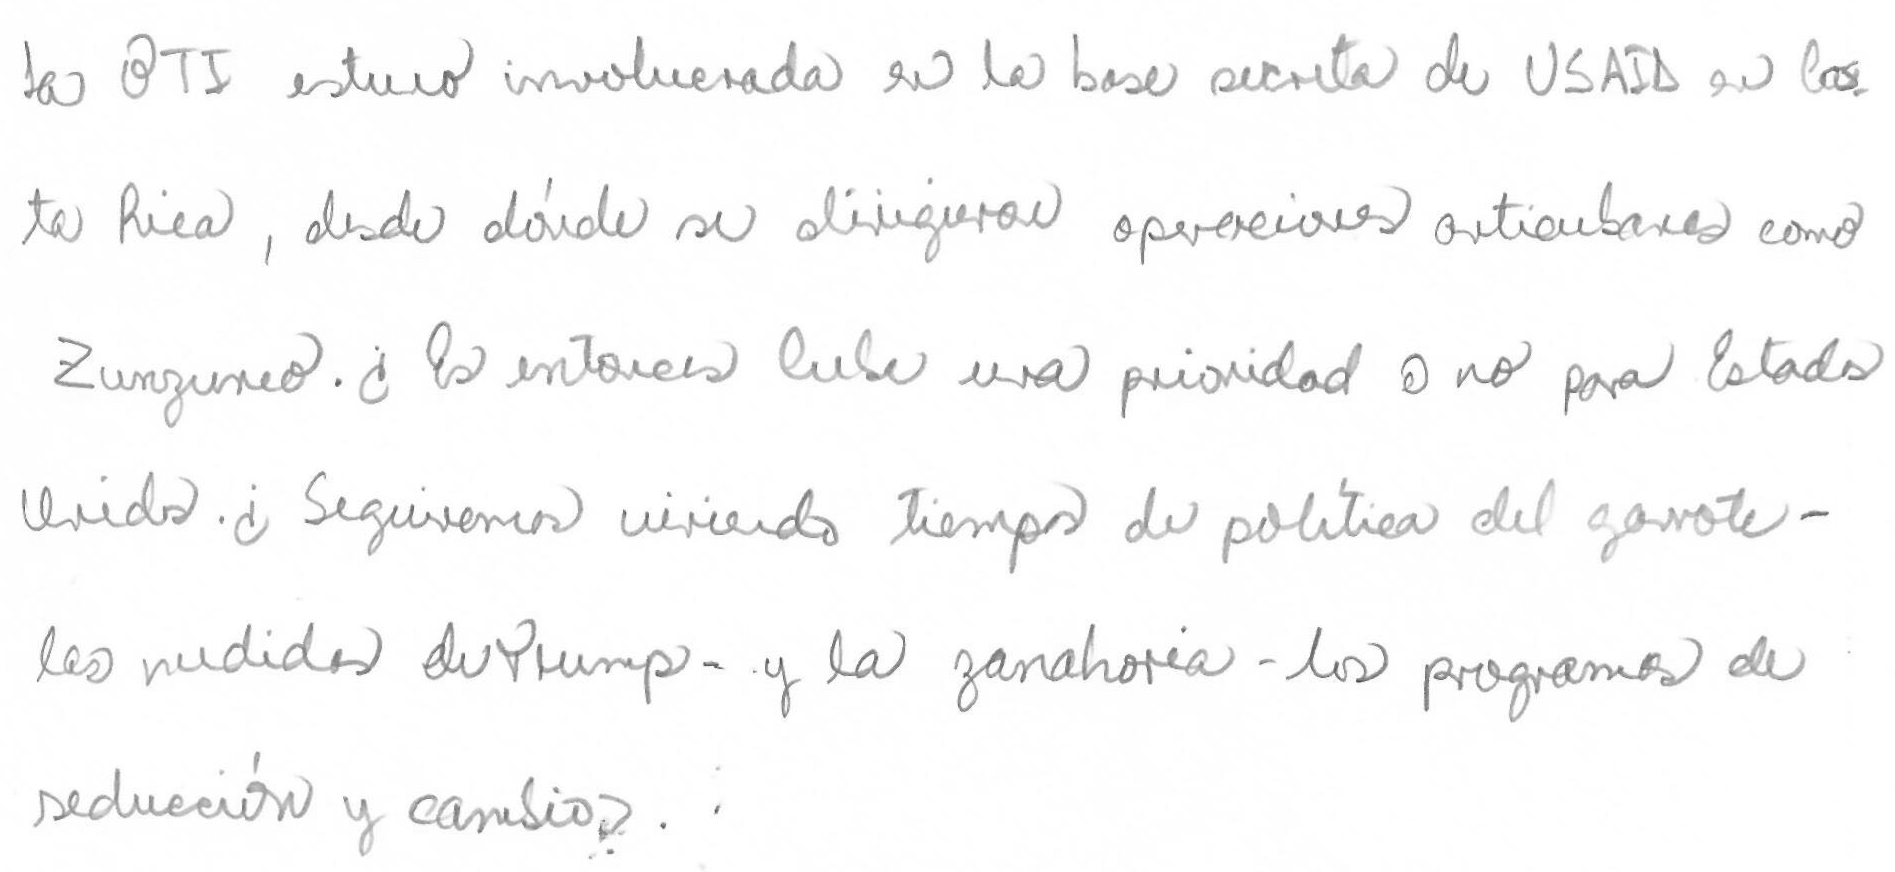 La OTI estuvo involucrada en la base secreta de USAID en Cos
ta Rica, desde dónde se dirigieron operaciones anticubanas como
Zunzuneo. ¿Es entonces Cuba una prioridad o no para Estados
Unidos. ¿Seguiremos viviendo tiempos de política del garrote -
las medidas de Trump - y la zanahoria - los programas de
seducción y cambio?.